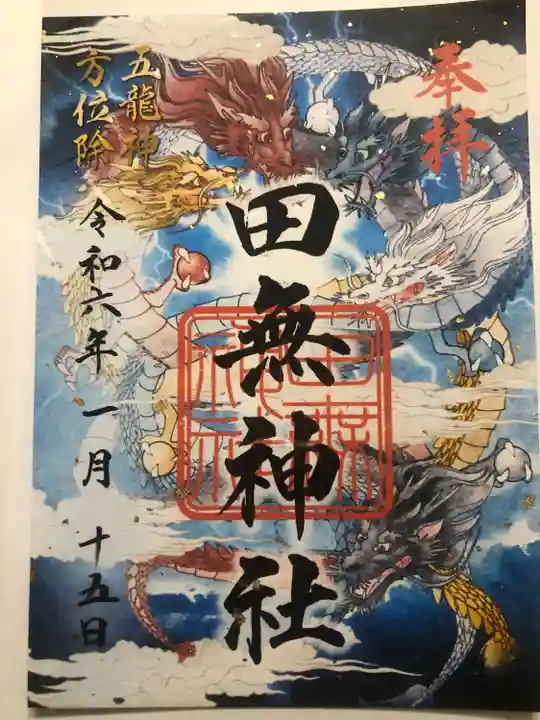 奉拝
田無神社
田無神社
五龍神
方位除
令和六年一月十五日